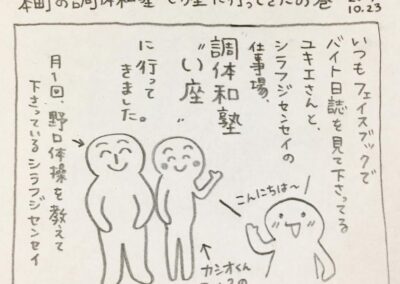 10.23
いつもフェイスブックで
バイト日誌を見て下さってる
ユキエさんと、
シラフジセンセイの
仕事場、
調体和塾
“い座”
に行って
きました。
月1回、野口体操を教えて
下さっているシラフジセンセイ
こんにちは〜
カシオくん